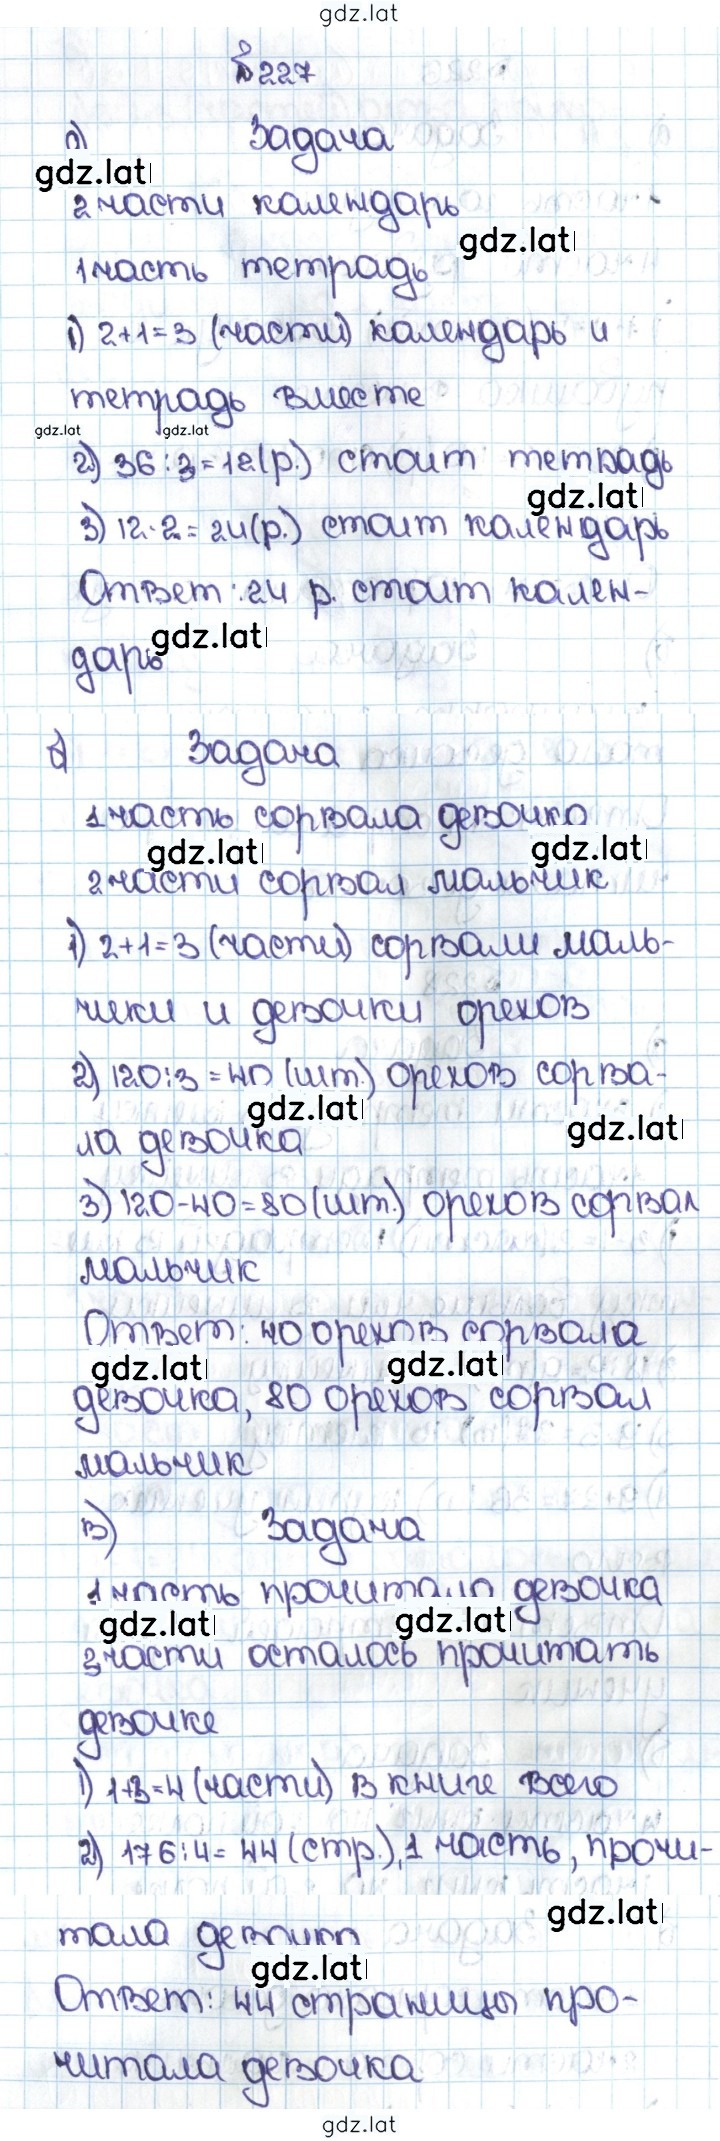 gdz.lat
№227
а) Задача
gdz.lat
2 части календарь
gdz.lat
1 часть тетрадь
1) 2+1=3 (части) календарь и
тетрадь вместе
gdz.lat gdz.lat
2) 36:3=12(р.) стоит тетрадь
gdz.lat
3) 12·2=24(р.) стоит календарь
Ответ: 24 р. стоит кален-
gdz.lat
дарь
б) Задача
1 часть сорвала девочка
gdz.lat gdz.lat
2 части сорвал мальчик
1) 2+1=3 (части) сорвали маль-
чики и девочки орехов
2) 120:3=40 (шт.) орехов сорва-
gdz.lat gdz.lat
ла девочка
3) 120-40=80 (шт.) орехов сорвал
мальчик
Ответ: 40 орехов сорвала
gdz.lat gdz.lat
девочка, 80 орехов сорвал
мальчик
в) Задача
1 часть прочитала девочка
gdz.lat gdz.lat
3 части осталось прочитать
девочке
1) 1+3=4 (части) в книге всего
2) 176:4=44 (стр.), 1 часть, прочи-
gdz.lat
тала девочка
gdz.lat
Ответ: 44 страницы про-
читала девочка
gdz.lat